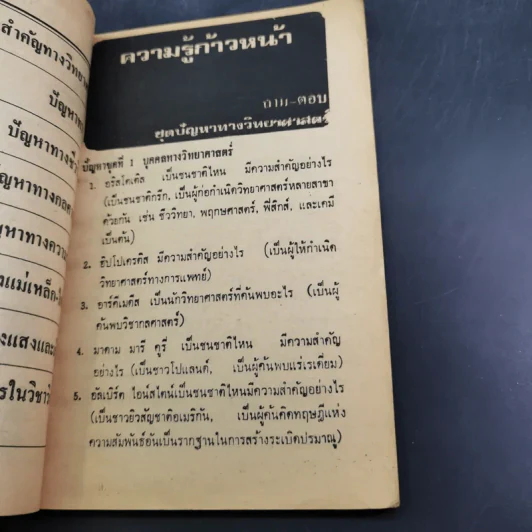 สำคัญทางวิทยา
ปัญหา
ปัญหาทางชีว
ปัญหาทางกลศ
หาทางความ
แม่เหล็ก-ไ
งแสงและเ
รในวิชาวิ
ความรู้ก้าวหน้า
ถาม-ตอบ
ชุดปัญหาทางวิทยาศาสตร์
ปัญหาชุดที่ 1 บุคคลทางวิทยาศาสตร์
1. อริสโตเติล เป็นชนชาติไหน มีความสำคัญอย่างไร
(เป็นชนชาติกรีก, เป็นผู้ก่อกำเนิดวิทยาศาสตร์หลายสาขา
ด้วยกัน เช่น ชีววิทยา, พฤกษศาสตร์, ฟิสิกส์, และเคมี
เป็นต้น)
2. ฮิปโปเครตีส มีความสำคัญอย่างไร (เป็นผู้ให้กำเนิด
วิทยาศาสตร์ทางการแพทย์)
3. อาร์คีเมดีส เป็นนักวิทยาศาสตร์ที่ค้นพบอะไร (เป็นผู้
ค้นพบวิชากลศาสตร์)
4. มาดาม มารี คูรี เป็นชนชาติไหน มีความสำคัญ
อย่างไร (เป็นชาวโปแลนด์, เป็นผู้ค้นพบแร่เรเดี่ยม)
5. อัลเบิร์ต ไอน์สไตน์เป็นชนชาติไหนมีความสำคัญอย่างไร
(เป็นชาวยิวสัญชาติอเมริกัน, เป็นผู้ค้นคิดทฤษฎีแห่ง
ความสัมพันธ์อันเป็นรากฐานในการสร้างระเบิดปรมาณู)